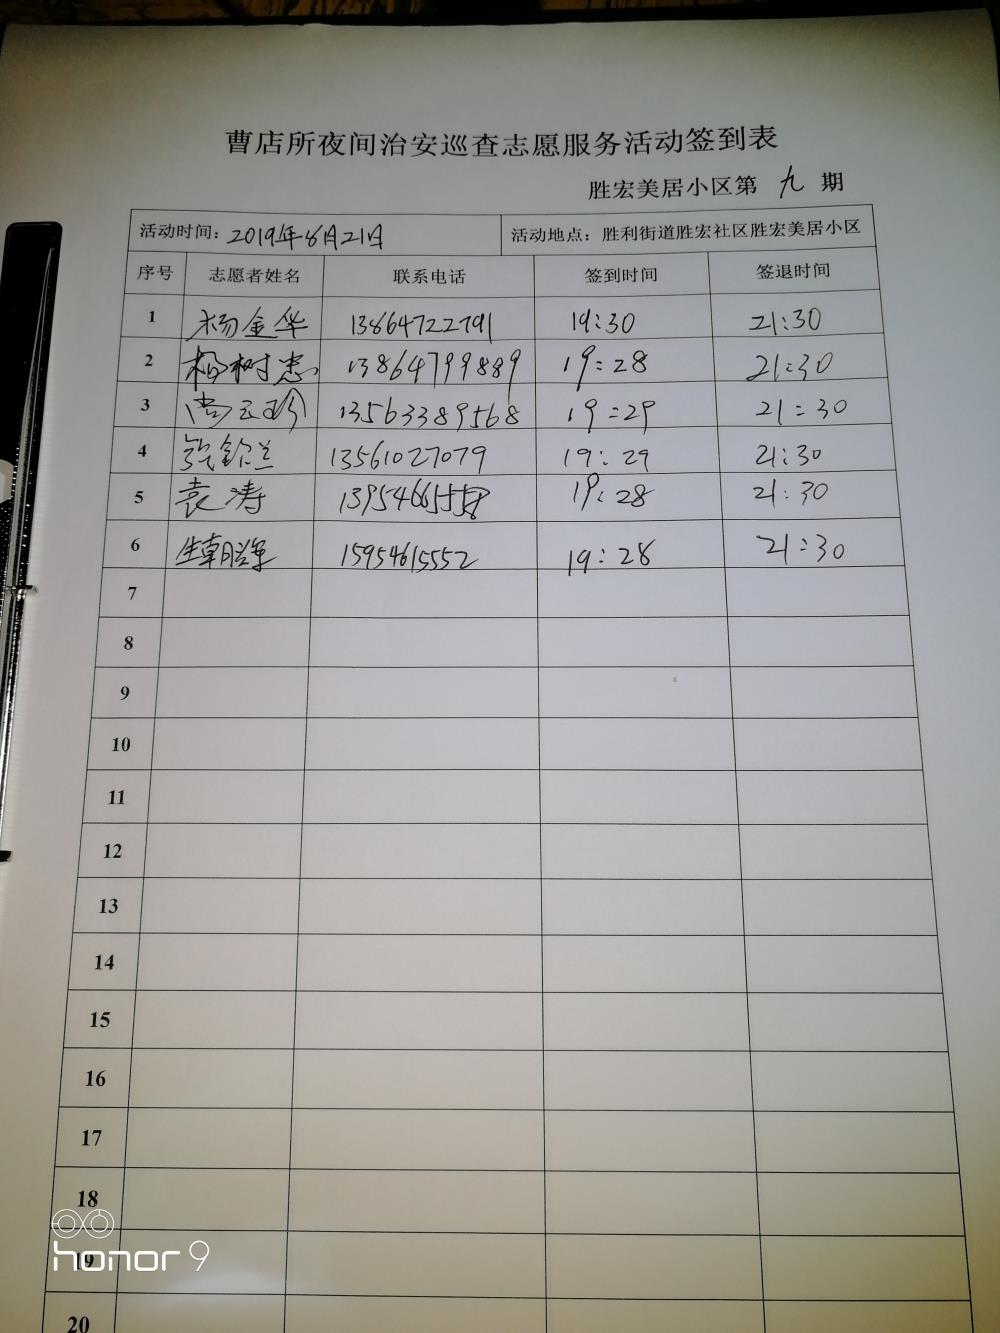 曹店所夜间治安巡查志愿服务活动签到表
胜宏美居小区第 九 期
活动时间：2019年6月21日 活动地点：胜利街道胜宏社区胜宏美居小区
序号 志愿者姓名 联系电话 签到时间 签退时间
1 杨金华 13864722791 19:30 21:30
2 杨树忠 13864799889 19:28 21:30
3 尚云珍 13563389568 19:29 21:30
4 张钦兰 13561027079 19:29 21:30
5 袁涛 19:28 21:30
6 15954615552 19:28 21:30
7
8
9
10
11
12
13
14
15
16
17
18
19
honor 9
20